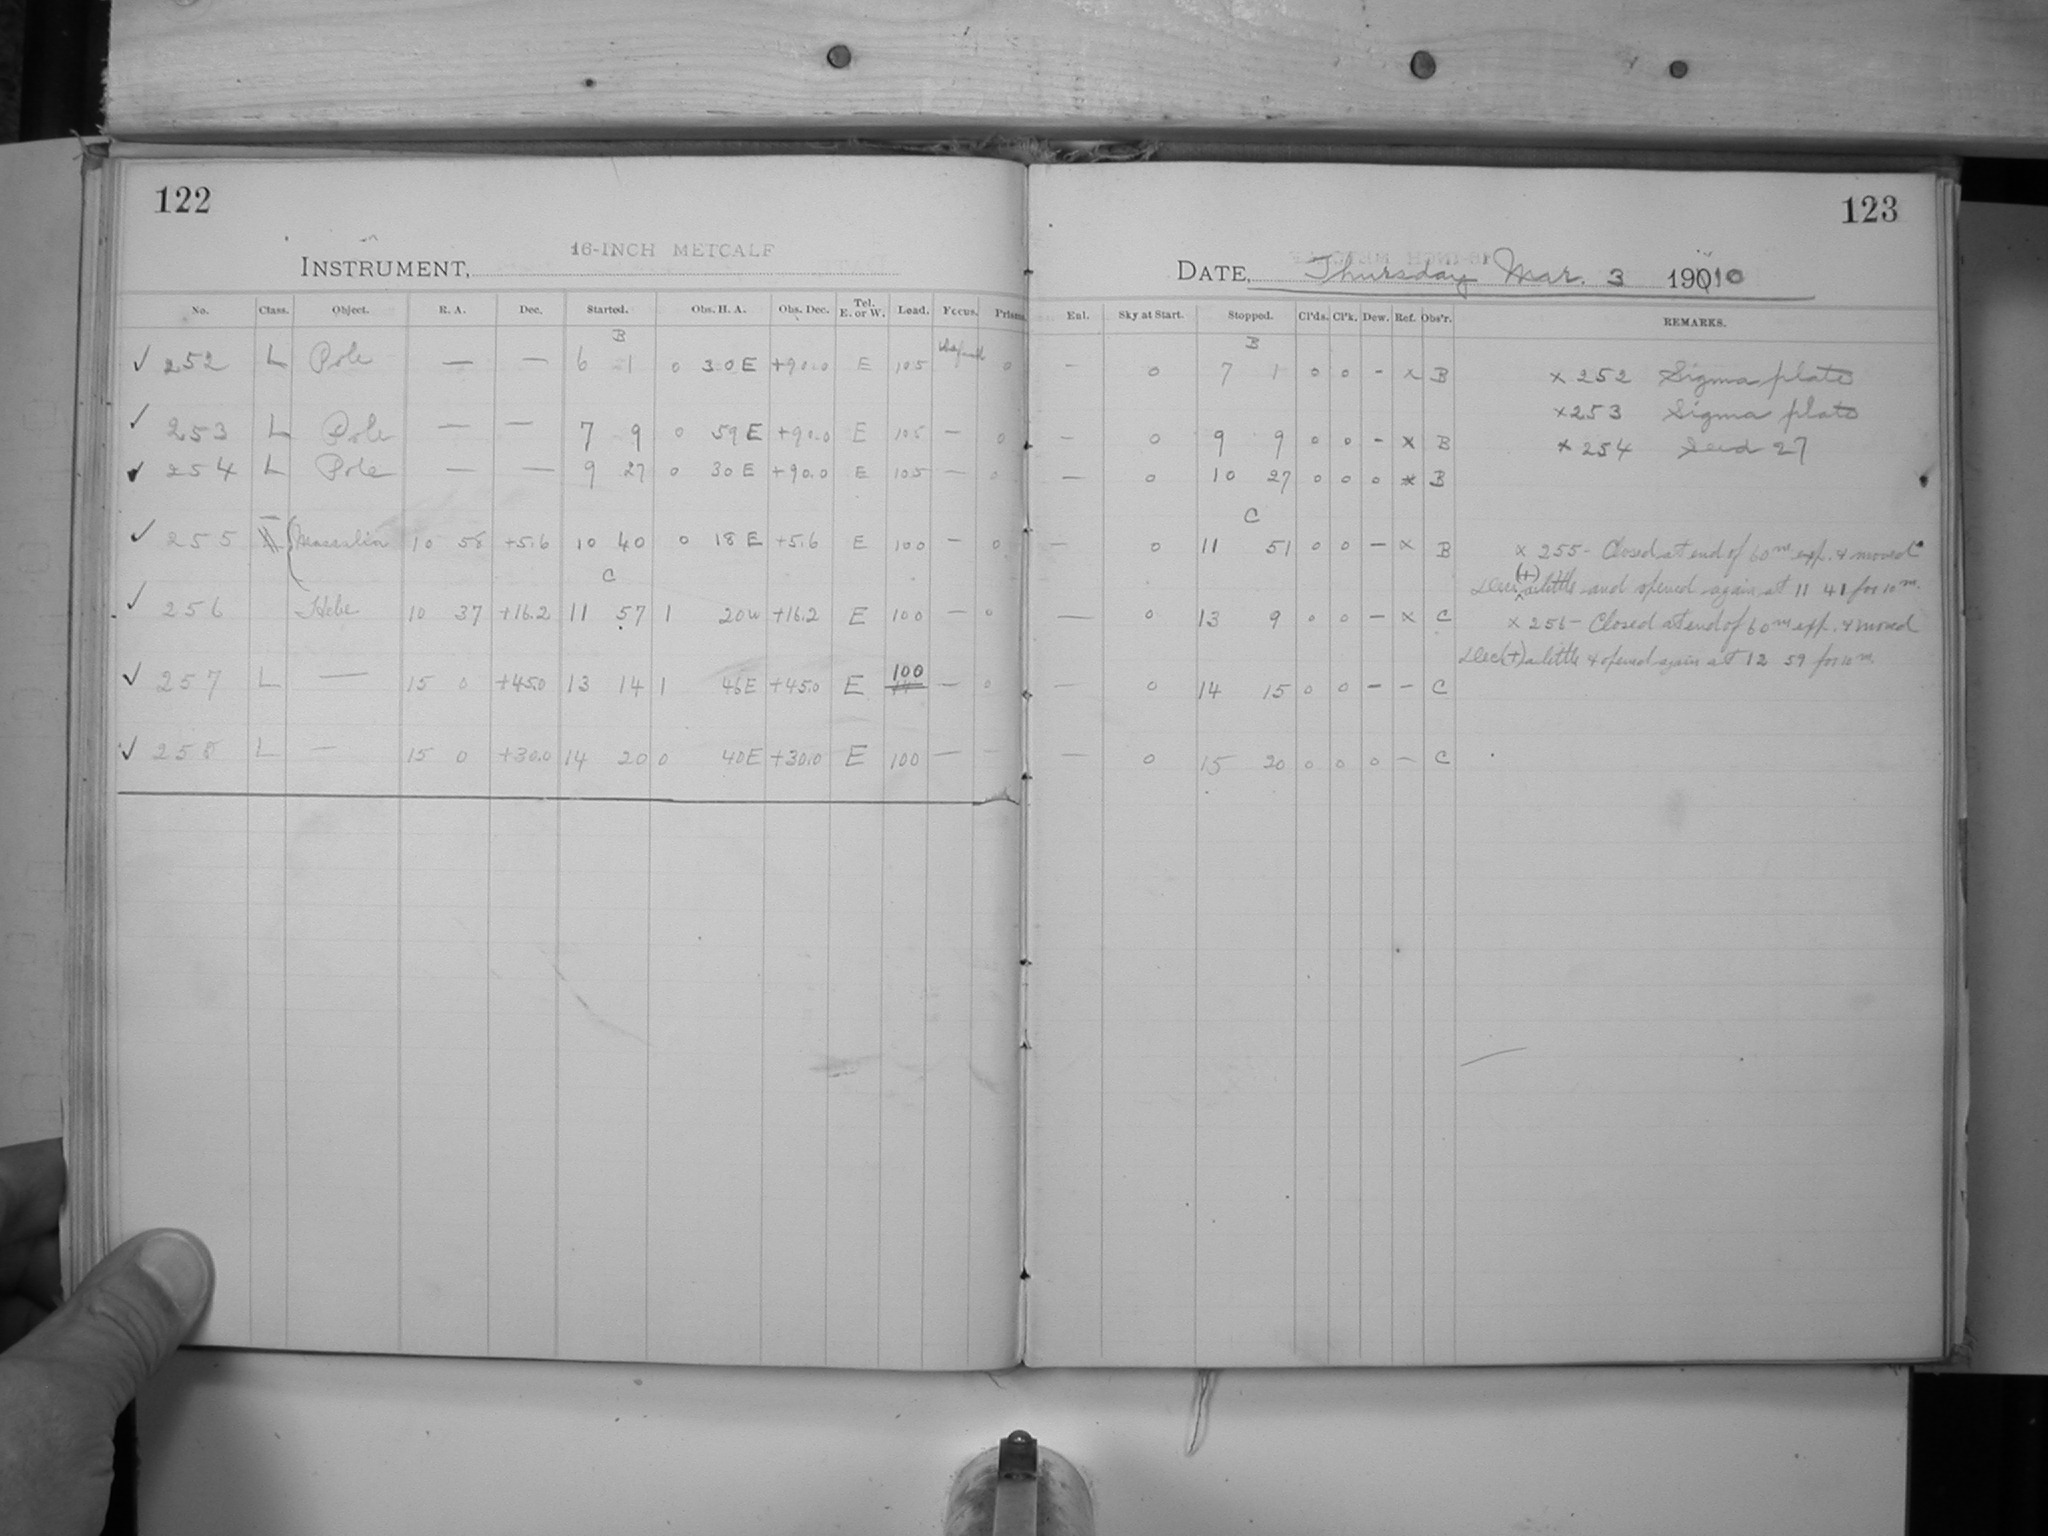 122
123
INSTRUMENT, 16-INCH METCALF
DATE, Thursday Mar. 3 1910
No. Class. Object. R. A. Dec. Started. Obs. H. A. Obs. Dec. Tel. E. or W. Load. Focus. Prisms.
Enl. Sky at Start. Stopped. Cl'ds. Cl'k. Dew. Ref. Obs'r. REMARKS.
B
B
✓ 252 L Pole — — 6 1 0 30 E +90.0 E 105 0 - 0 7 1 0 0 - x B x 252 Sigma plate
x 253 Sigma plate
✓ 253 L Pole — — 7 9 0 59 E +90.0 E 105 — 0 - 0 9 9 0 0 - x B x 254 Seed 27
✓ 254 L Pole — — 9 27 0 30 E +90.0 E 105 — 0 — 0 10 27 0 0 0 x B
C
✓ 255 Massalia 10 58 +5.6 10 40 0 18 E +5.6 E 100 — 0 — 0 11 51 0 0 — x B x 255 - Closed at end of 60m exp. & moved
C
Dec. (+) a little and opened again at 11 41 for 10m.
✓ 256 Hebe 10 37 +16.2 11 57 1 20 W +16.2 E 100 — 0 — 0 13 9 0 0 — x C x 256 - Closed at end of 60m exp. & moved
Dec (+) a little & opened again at 12 59 for 10m.
✓ 257 L — 15 0 +45.0 13 14 1 46 E +45.0 E 100 — 0 — 0 14 15 0 0 - - C
✓ 258 L — 15 0 +30.0 14 20 0 40 E +30.0 E 100 — — — 0 15 20 0 0 0 - C